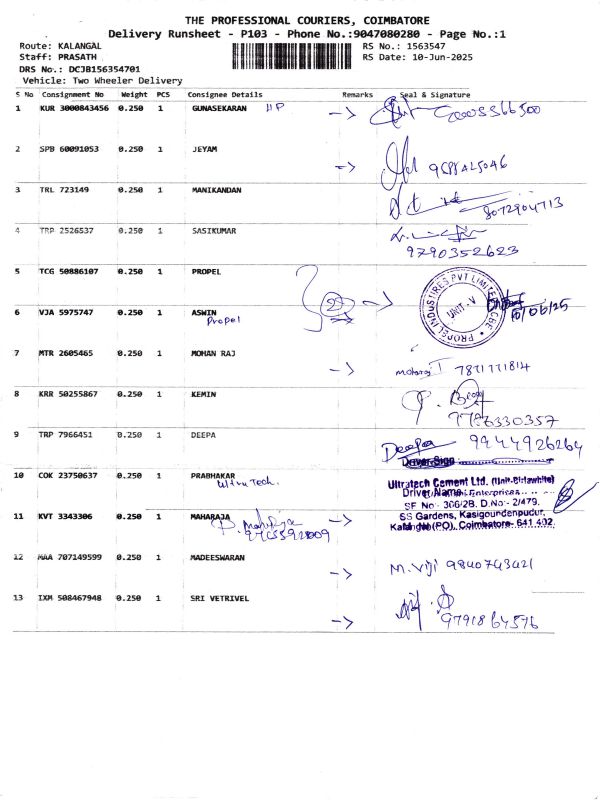 THE PROFESSIONAL COURIERS, COIMBATORE
Delivery Runsheet - P103 - Phone No.:9047080280 - Page No.:1
Route: KALANGAL RS No.: 1563547
Staff: PRASATH RS Date: 10-Jun-2025
DRS No.: DCJB156354701
Vehicle: Two Wheeler Delivery
S No Consignment No Weight PCS Consignee Details Remarks Seal & Signature
1 KUR 3000843456 0.250 1 GUNASEKARAN HP ->
2 SPB 60091053 0.250 1 JEYAM ->
3 TRL 723149 0.250 1 MANIKANDAN 8072904713
4 TRP 2526537 0.250 1 SASIKUMAR 9790352623
5 TCG 50886107 0.250 1 PROPEL
PROPEL INDUSTRIES PVT LIMITED CBE UNIT-V 10/06/25
6 VJA 5975747 0.250 1 ASWIN
Propel
7 MTR 2605465 0.250 1 MOHAN RAJ ->
8 KRR 50255867 0.250 1 KEMIN 7786330357
9 TRP 7966451 0.250 1 DEEPA Deepa 9944926264
Driver Sign
10 COK 23750637 0.250 1 PRABHAKAR
Ultra Tech.
Ultratech Cement Ltd. (Unit-Birlawhite)
Driver Name Enterprises
SF No- 306/2B, D.No- 2/479,
SS Gardens, Kasigoundenpudur,
Kalangal(PO), Coimbatore- 641 402.
11 KVT 3343306 0.250 1 MAHARAJA
12 MAA 707149599 0.250 1 MADEESWARAN -> M. Viji 9840743421
13 IXM 508467948 0.250 1 SRI VETRIVEL -> 9791864576